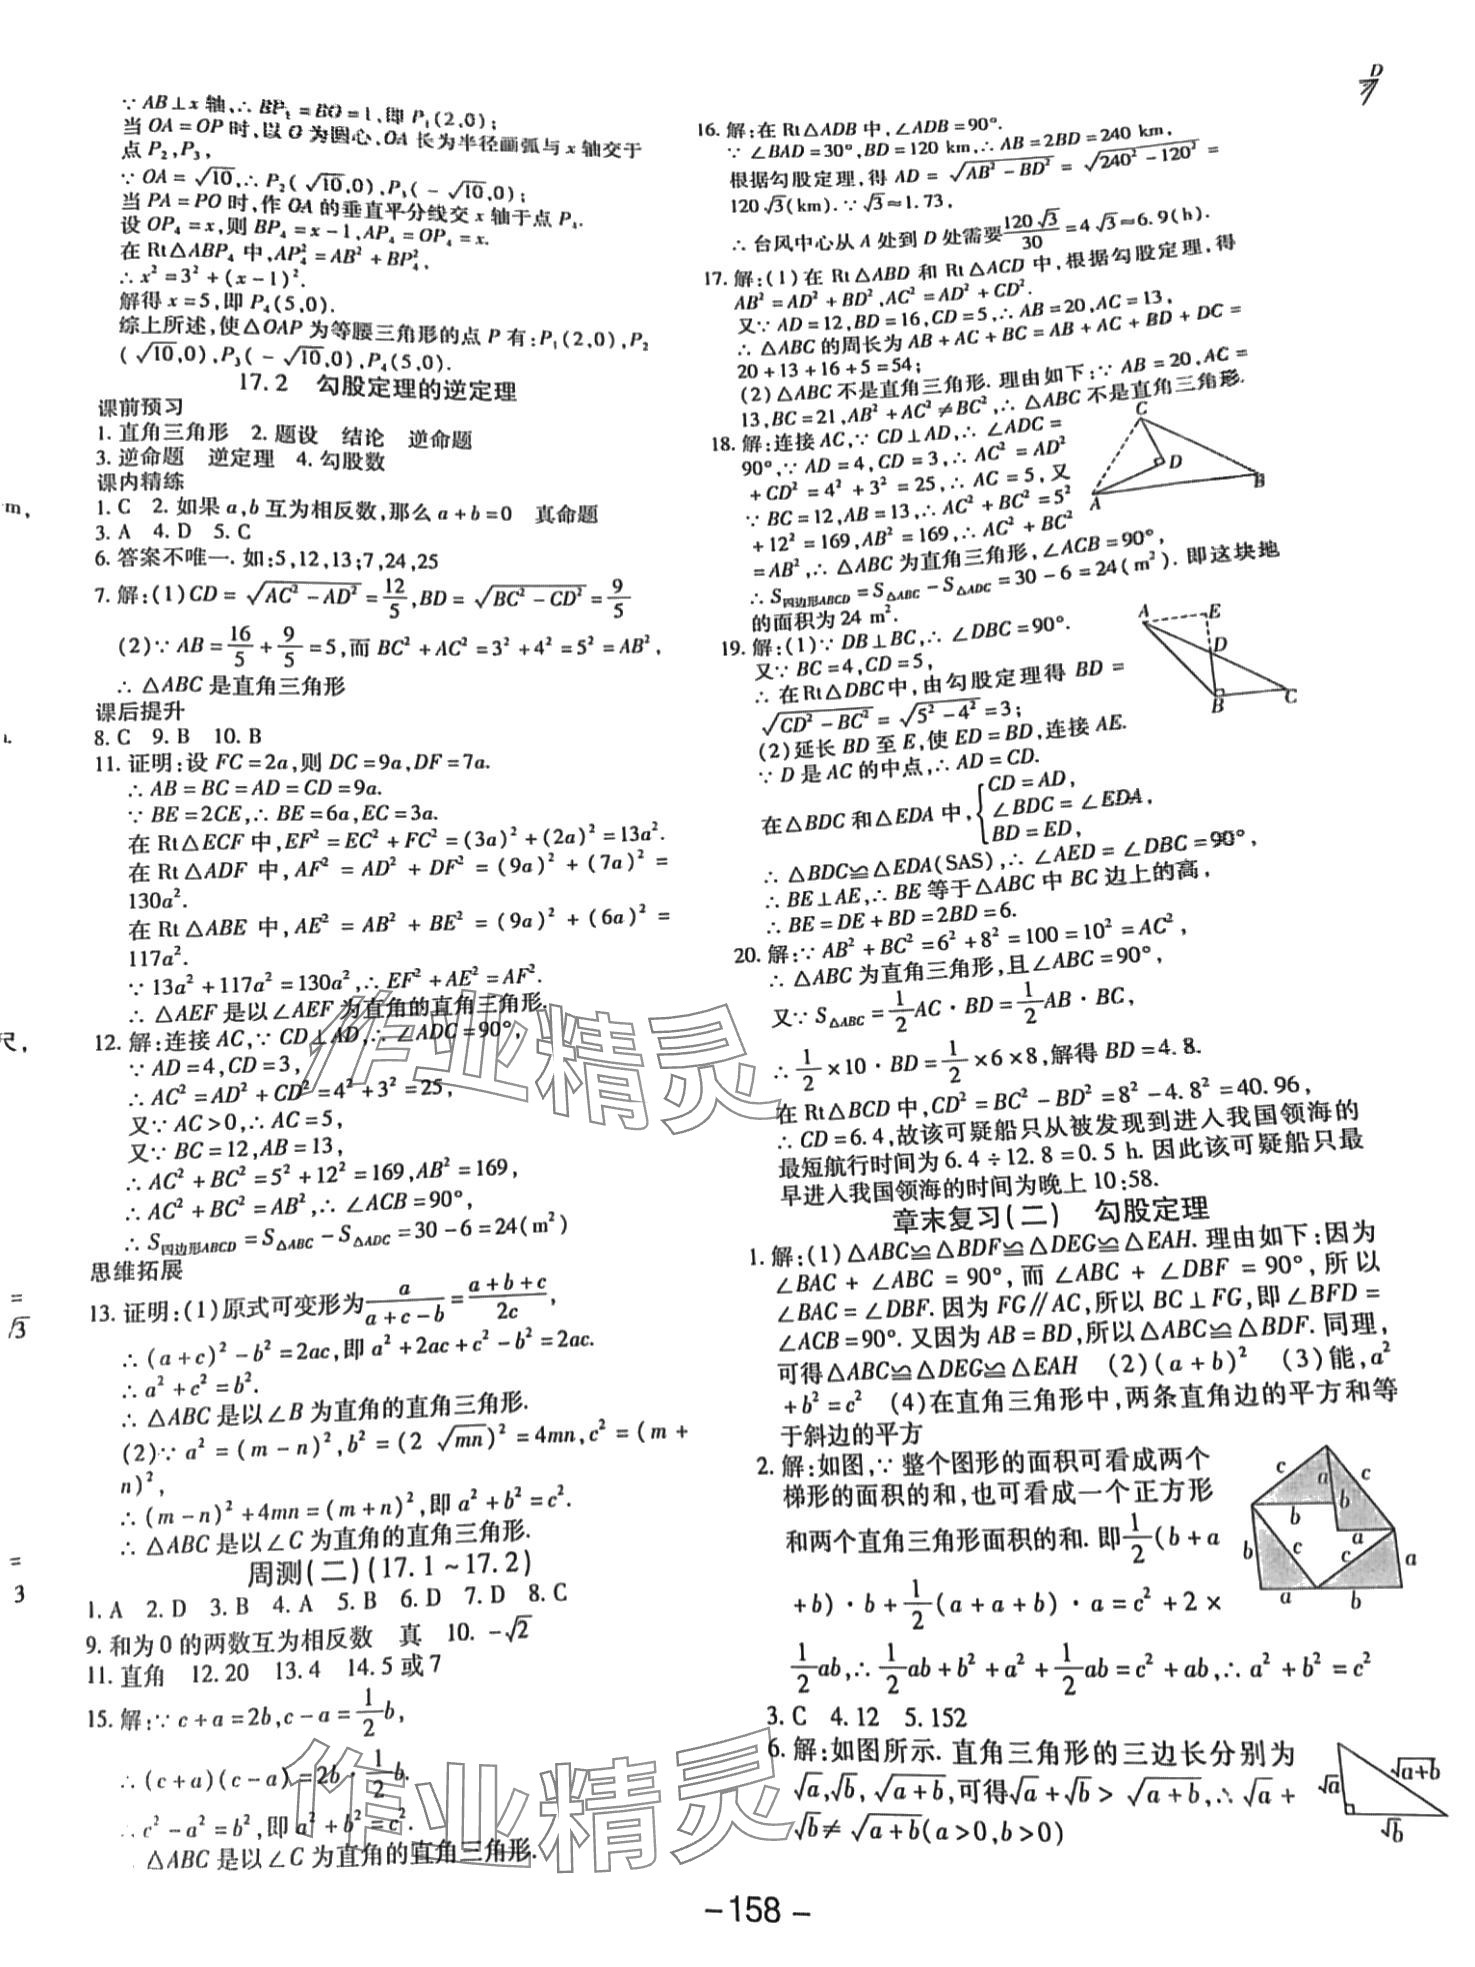 ∵AB⊥x轴,∴BP₁=BO=1,即P₁(2,0);
当OA=OP时,以O为圆心,OA长为半径画弧与x轴交于
点P₂,P₃,
∵OA=√10,∴P₂(√10,0),P₃(-√10,0);
当PA=PO时,作OA的垂直平分线交x轴于点P₄.
设OP₄=x,则BP₄=x-1,AP₄=OP₄=x.
在Rt△ABP₄中,AP₄²=AB²+BP₄²,
∴x²=3²+(x-1)².
解得x=5,即P₄(5,0).
综上所述,使△OAP为等腰三角形的点P有:P₁(2,0),P₂
(√10,0),P₃(-√10,0),P₄(5,0).
17.2 勾股定理的逆定理
课前预习
1.直角三角形 2.题设 结论 逆命题
3.逆命题 逆定理 4.勾股数
课内精练
1.C 2.如果a,b互为相反数,那么a+b=0 真命题
3.A 4.D 5.C
6.答案不唯一.如:5,12,13;7,24,25
7.解:(1)CD=√(AC²-AD²)=12/5,BD=√(BC²-CD²)=9/5
(2)∵AB=16/5+9/5=5,而BC²+AC²=3²+4²=5²=AB²,
∴△ABC是直角三角形
课后提升
8.C 9.B 10.B
11.证明:设FC=2a,则DC=9a,DF=7a.
∴AB=BC=AD=CD=9a.
∵BE=2CE,∴BE=6a,EC=3a.
在Rt△ECF中,EF²=EC²+FC²=(3a)²+(2a)²=13a².
在Rt△ADF中,AF²=AD²+DF²=(9a)²+(7a)²=
130a².
在Rt△ABE中,AE²=AB²+BE²=(9a)²+(6a)²=
117a².
∵13a²+117a²=130a²,∴EF²+AE²=AF².
∴△AEF是以∠AEF为直角的直角三角形.
12.解:连接AC,∵CD⊥AD,∴∠ADC=90°,
∵AD=4,CD=3,
∴AC²=AD²+CD²=4²+3²=25,
又∵AC>0,∴AC=5,
又∵BC=12,AB=13,
∴AC²+BC²=5²+12²=169,AB²=169,
∴AC²+BC²=AB²,∴∠ACB=90°,
∴S四边形ABCD=S△ABC-S△ADC=30-6=24(m²)
思维拓展
13.证明:(1)原式可变形为a/(a+c-b)=(a+b+c)/2c,
∴(a+c)²-b²=2ac,即a²+2ac+c²-b²=2ac.
∴a²+c²=b².
∴△ABC是以∠B为直角的直角三角形.
(2)∵a²=(m-n)²,b²=(2√mn)²=4mn,c²=(m+
n)²,
∴(m-n)²+4mn=(m+n)²,即a²+b²=c².
∴△ABC是以∠C为直角的直角三角形.
周测(二)(17.1~17.2)
1.A 2.D 3.B 4.A 5.B 6.D 7.D 8.C
9.和为0的两数互为相反数 真 10.-√2
11.直角 12.20 13.4 14.5或7
15.解:∵c+a=2b,c-a=1/2b,
∴(c+a)(c-a)=2b·1/2b.
∴c²-a²=b²,即a²+b²=c².
△ABC是以∠C为直角的直角三角形.
16.解:在Rt△ADB中,∠ADB=90°.
∵∠BAD=30°,BD=120 km,∴AB=2BD=240 km,
根据勾股定理,得AD=√(AB²-BD²)=√(240²-120²)=
120√3(km).∵√3≈1.73,
∴台风中心从A处到D处需要120√3/30=4√3≈6.9(h).
17.解:(1)在Rt△ABD和Rt△ACD中,根据勾股定理,得
AB²=AD²+BD²,AC²=AD²+CD².
又∵AD=12,BD=16,CD=5,∴AB=20,AC=13,
∴△ABC的周长为AB+AC+BC=AB+AC+BD+DC=
20+13+16+5=54;
(2)△ABC不是直角三角形.理由如下:∵AB=20,AC=
13,BC=21,AB²+AC²≠BC²,∴△ABC不是直角三角形.
18.解:连接AC,∵CD⊥AD,∴∠ADC=
90°,∵AD=4,CD=3,∴AC²=AD²
+CD²=4²+3²=25,∴AC=5,又
∵BC=12,AB=13,∴AC²+BC²=5²
+12²=169,AB²=169,∴AC²+BC²
=AB²,∴△ABC为直角三角形,∠ACB=90°,
∴S四边形ABCD=S△ABC-S△ADC=30-6=24(m²).即这块地
的面积为24 m².
C
D
A
B
19.解:(1)∵DB⊥BC,∴∠DBC=90°.
又∵BC=4,CD=5,
∴在Rt△DBC中,由勾股定理得BD=
√(CD²-BC²)=√(5²-4²)=3;
(2)延长BD至E,使ED=BD,连接AE.
∵D是AC的中点,∴AD=CD.
在△BDC和△EDA中,{CD=AD,
∠BDC=∠EDA,
BD=ED,
∴△BDC≌△EDA(SAS),∴∠AED=∠DBC=90°,
∴BE⊥AE,∴BE等于△ABC中BC边上的高,
∴BE=DE+BD=2BD=6.
A
E
D
B
C
20.解:∵AB²+BC²=6²+8²=100=10²=AC²,
∴△ABC为直角三角形,且∠ABC=90°,
又∵S△ABC=1/2AC·BD=1/2AB·BC,
∴1/2×10·BD=1/2×6×8,解得BD=4.8.
在Rt△BCD中,CD²=BC²-BD²=8²-4.8²=40.96,
∴CD=6.4,故该可疑船只从被发现到进入我国领海的
最短航行时间为6.4÷12.8=0.5 h.因此该可疑船只最
早进入我国领海的时间为晚上10:58.
章末复习(二) 勾股定理
1.解:(1)△ABC≌△BDF≌△DEG≌△EAH.理由如下:因为
∠BAC+∠ABC=90°,而∠ABC+∠DBF=90°,所以
∠BAC=∠DBF.因为FG∥AC,所以BC⊥FG,即∠BFD=
∠ACB=90°.又因为AB=BD,所以△ABC≌△BDF.同理,
可得△ABC≌△DEG≌△EAH (2)(a+b)² (3)能,a²
+b²=c² (4)在直角三角形中,两条直角边的平方和等
于斜边的平方
2.解:如图,∵整个图形的面积可看成两个
梯形的面积的和,也可看成一个正方形
和两个直角三角形面积的和.即1/2(b+a
+b)·b+1/2(a+a+b)·a=c²+2×
1/2ab,∴1/2ab+b²+a²+1/2ab=c²+ab,∴a²+b²=c²
c
a
c
b
b
b
c
c
a
a
a
b
3.C 4.12 5.152
6.解:如图所示.直角三角形的三边长分别为
√a,√b,√(a+b),可得√a+√b>√(a+b),∴√a+
√b≠√(a+b)(a>0,b>0)
√a
√(a+b)
√b
-158-
D
m,
尺,
=
√3
=
3
作业精灵
作业精灵